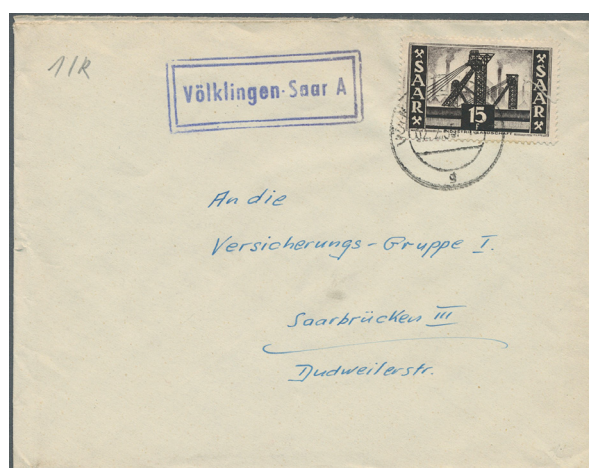 1/R
Völklingen-Saar A
SAAR
SAAR
15
g
An die
Versicherungs-Gruppe I.
Saarbrücken III
Dudweilerstr.